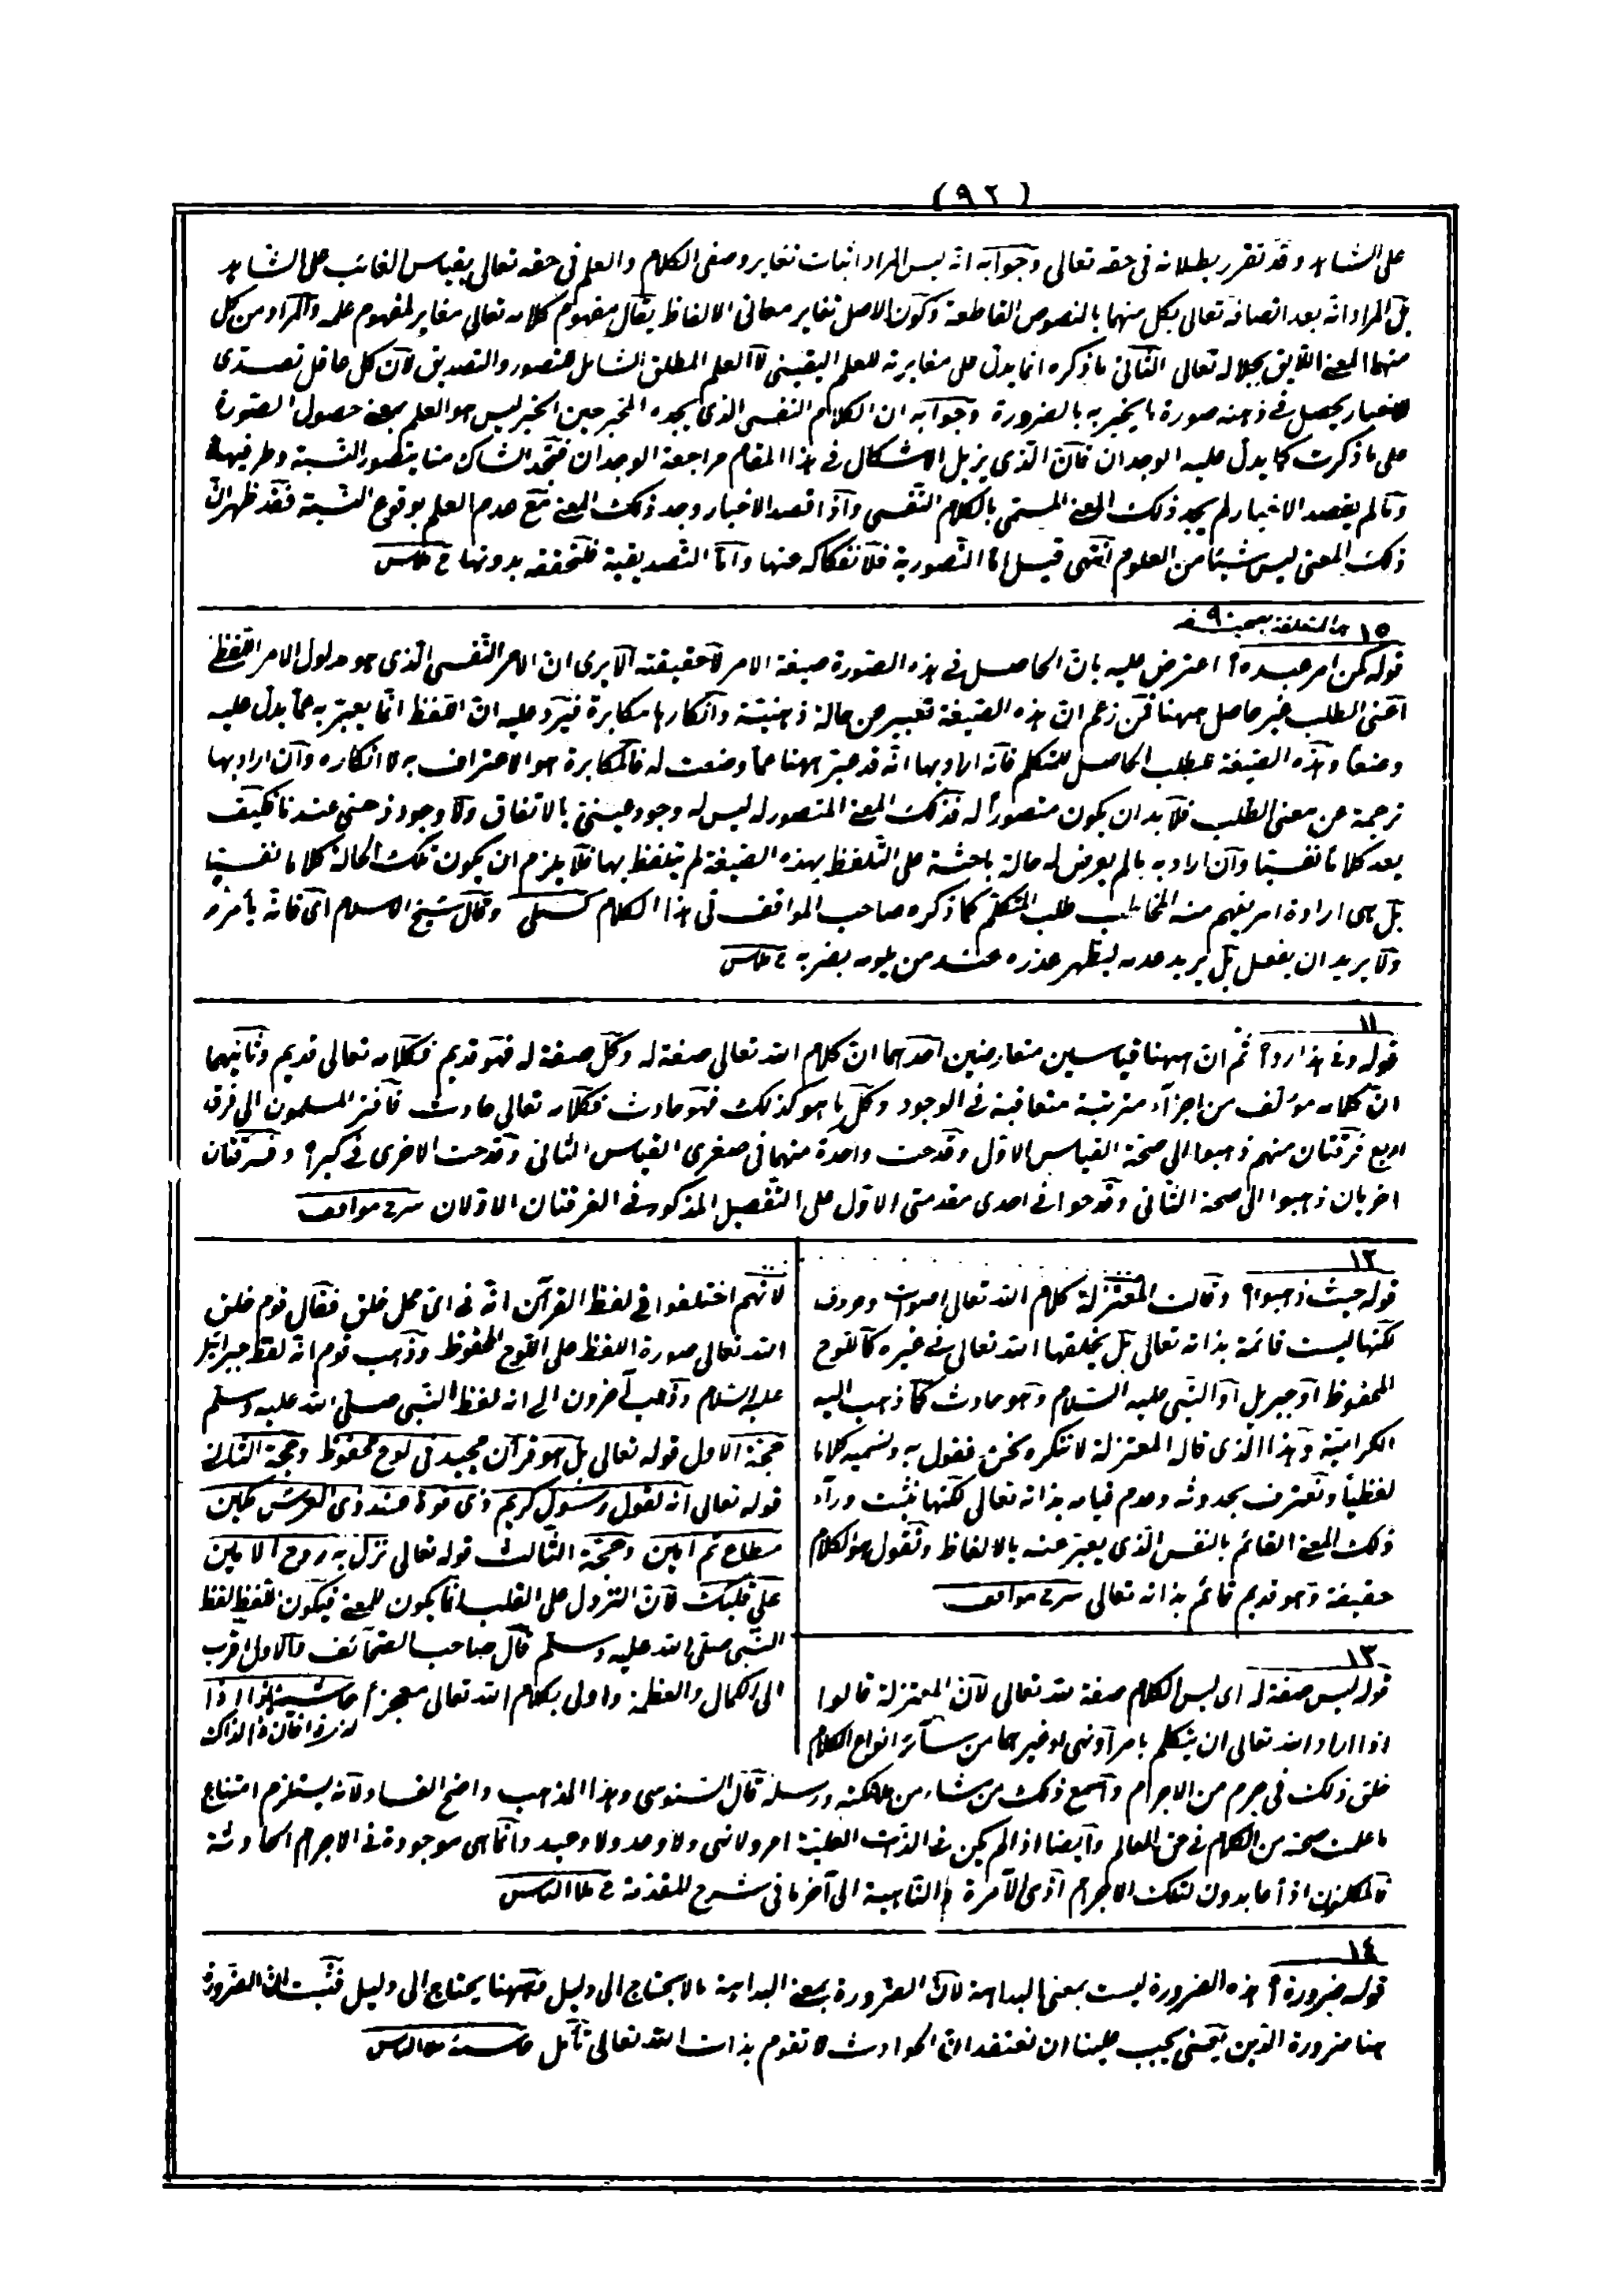 (٩٢)
على الشاهد وقد تقرر بطلانه فى حقه تعالى وجوابه انه ليس المراد اثبات تغاير وصفى الكلام والعلم فى حقه تعالى بقياس الغائب على الشاهد
بل المراد انه بعد اتصافه تعالى بكل منهما بالنصوص القاطعة وكون الاصل تغاير معانى الالفاظ يقال مفهوم كلامه تعالى مغاير لمفهوم علمه والمراد من كل
منهما المعنى اللايق بجلاله تعالى الثانى ما ذكره انما يدل على مغايرته للعلم اليقينى لا العلم المطلق الشامل للتصور والتصديق لان كل عاقل تصدى
للاخبار يحصل فى ذهنه صورة ما يخبر به بالضرورة وجوابه ان الكلام النفسى الذى يجده المخبر حين الخبر ليس هو العلم بمعنى حصول الصورة
على ما ذكرت كما يدل عليه الوجدان فان الذى يزيل الاشكال فى هذا المقام مراجعة الوجدان فتجد الشاك منا يتصور النسبة وطرفيها
وما لم يقصد الاخبار لم يجد ذلك المعنى المسمى بالكلام النفسى واذا قصد الاخبار وجد ذلك المعنى مع عدم العلم بوقوع النسبة فقد ظهر ان
ذلك المعنى ليس شيئا من العلوم انتهى قيل اما التصورية فلانفكاكه عنها واما التصديقية فلتحققه بدونها
١٥ ٩٠
قوله كمن امر عبده؟ اعترض عليه بان الحاصل فى هذه الصورة صيغة الامر لا حقيقته الا يرى ان الامر النفسى الذى هو مدلول الامر اللفظى
اعنى الطلب غير حاصل ههنا فمن زعم ان هذه الصيغة تعبير عن حالة ذهنية وانكارها مكابرة فيرد عليه ان اللفظ انما يعبر به عما يدل عليه
وضعا وهذه الصيغة للطلب الحاصل للمتكلم فانه اراد بها انه قد عبر ههنا عما وضعت له فالمكابرة هو الاعتراف به لا انكاره وان اراد بها
ترجمة عن معنى الطلب فلا بد ان يكون متصورا له فذلك المعنى المتصور له ليس له وجود عينى بالاتفاق ولا وجود ذهنى عندنا فكيف
يعد كلاما نفسيا وان اراد به ما لم يعرض له حالة باعثة على التلفظ بهذه الصيغة لم يتلفظ بها فلا يلزم ان يكون تلك الحالة كلاما نفسيا
بل هى ارادة امر يفهم منه المخاطب طلب المتكلم كما ذكره صاحب المواقف فى هذا الكلام كستلى وقال شيخ الاسلام اى فانه يأمره
ولا يريد ان يفعل بل يريد عدمه ليظهر عذره عند من يلومه بضربه
١١
قوله وفى هذا رد؟ ثم ان ههنا قياسين متعارضين احدهما ان كلام الله تعالى صفة له وكل صفة له فهو قديم فكلامه تعالى قديم وثانيهما
ان كلامه مؤلف من اجزاء مترتبة متعاقبة فى الوجود وكل ما هو كذلك فهو حادث فكلامه تعالى حادث فافترق المسلمون الى فرق
اربع فرقتان منهم ذهبوا الى صحة القياس الاول وقدحت واحدة منهما فى صغرى القياس الثانى وقدحت الاخرى فى كبرا؟ وفرقتان
اخريان ذهبوا الى صحة الثانى وقدحوا فى احدى مقدمتى الاول على التفصيل المذكور فى الفرقتان الاولان شرح مواقف
١٢
قوله حيث ذهبوا؟ وقالت المعتزلة كلام الله تعالى اصوات وحروف
لكنها ليست قائمة بذاته تعالى بل يخلقها الله تعالى فى غيره كاللوح
المحفوظ او جبريل او النبى عليه السلام وهو حادث كما ذهب اليه
الكرامية وهذا الذى قاله المعتزلة لا ننكره ونحن نقول به ونسميه كلاما
لفظيا ونعترف بحدوثه وعدم قيامه بذاته تعالى لكنها نثبت وراء
ذلك المعنى القائم بالنفس الذى يعبر عنه بالالفاظ ونقول هو الكلام
حقيقة وهو قديم قائم بذاته تعالى شرح مواقف
١٣
قوله ليس صفة له اى ليس الكلام صفة لله تعالى لان المعتزلة قالوا
اذا اراد الله تعالى ان يتكلم بامر او نهى او غيرهما من سائر انواع الكلام
لانهم اختلفوا فى لفظ القرآن انه فى اى محل خلق فقال قوم خلق
الله تعالى صورة اللفظ على اللوح المحفوظ وذهب قوم انه لفظ جبرائيل
عليه السلام وذهب آخرون الى انه لفظ النبى صلى الله عليه وسلم
حجة الاول قوله تعالى بل هو قرآن مجيد فى لوح محفوظ وحجة الثانى
قوله تعالى انه لقول رسول كريم ذى قوة عند ذى العرش مكين
مطاع ثم امين وحجة الثالث قوله تعالى نزل به روح الامين
على قلبك لان النزول على القلب انما يكون للمعنى فيكون اللفظ لفظ
النبى صلى الله عليه وسلم قال صاحب الصحائف والاول اقرب
الى الكمال والعظمة واولى بكلام الله تعالى معجزا حاشية
خلق ذلك فى جرم من الاجرام واسمع ذلك من شاء من ملائكته ورسله قال السنوسى وهذا المذهب واضح الفساد لانه يستلزم امتناع
ما علمت صحته من الكلام فى حق العالم وايضا اذا لم يكن فى الذات العلية امر ولا نهى ولا وعد ولا وعيد وانما هى موجودة فى الاجرام الحادثة
فالمكلفون اذا عابدون لتلك الاجرام اذ هى الآمرة والناهية الى آخر ما فى شرح المقدمة
١٤
قوله ضرورة؟ هذه الضرورة ليست بمعنى البداهة لان الضرورة بمعنى البداهة ما لا يحتاج الى دليل وههنا يحتاج الى دليل فثبت ان الضرورة
هنا ضرورة الدين بمعنى يجب علينا ان نعتقد ان الحوادث لا تقوم بذات الله تعالى تأمل